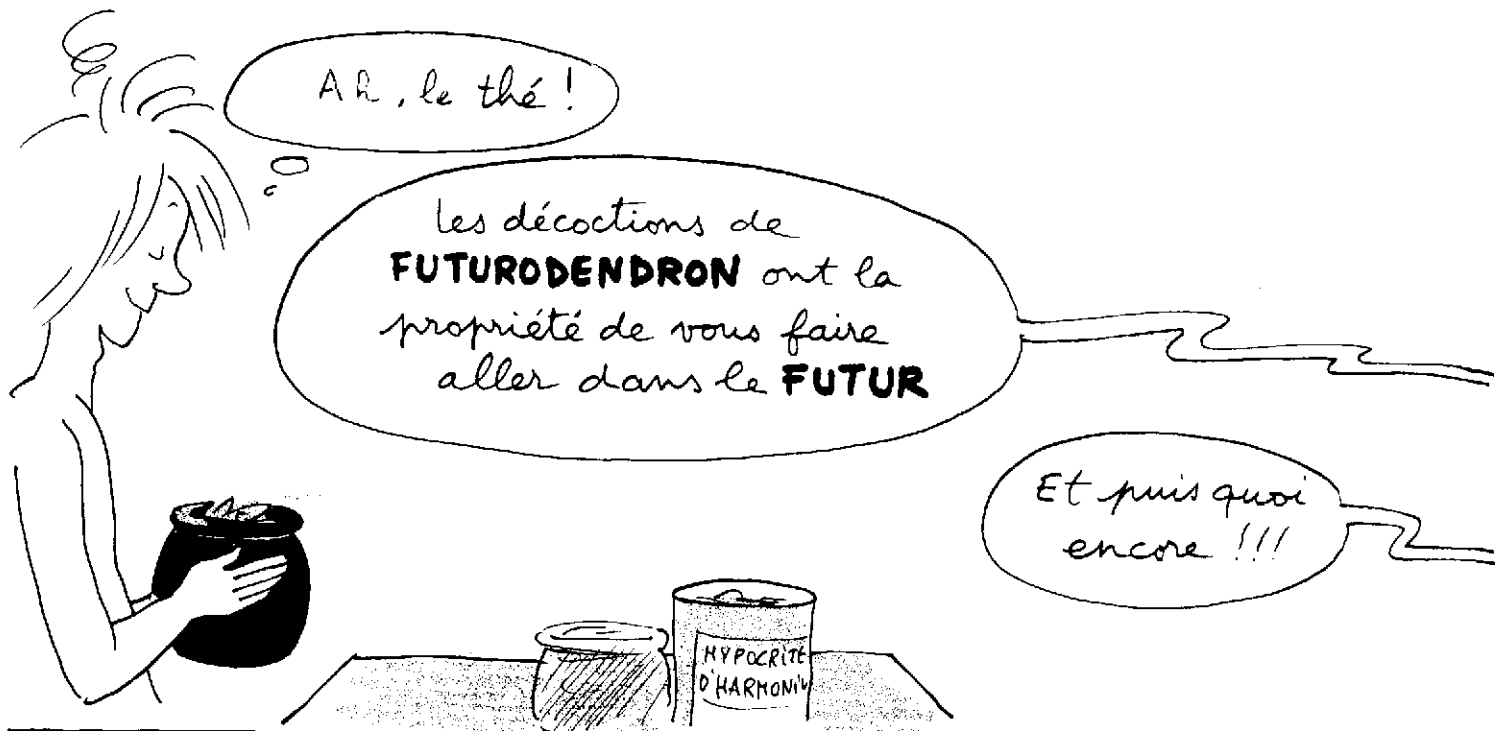 Ah, le thé !
les décoctions de
FUTURODENDRON ont la
propriété de vous faire
aller dans le FUTUR
Et puis quoi
encore !!!
HYPOCRITE
D'HARMONIU